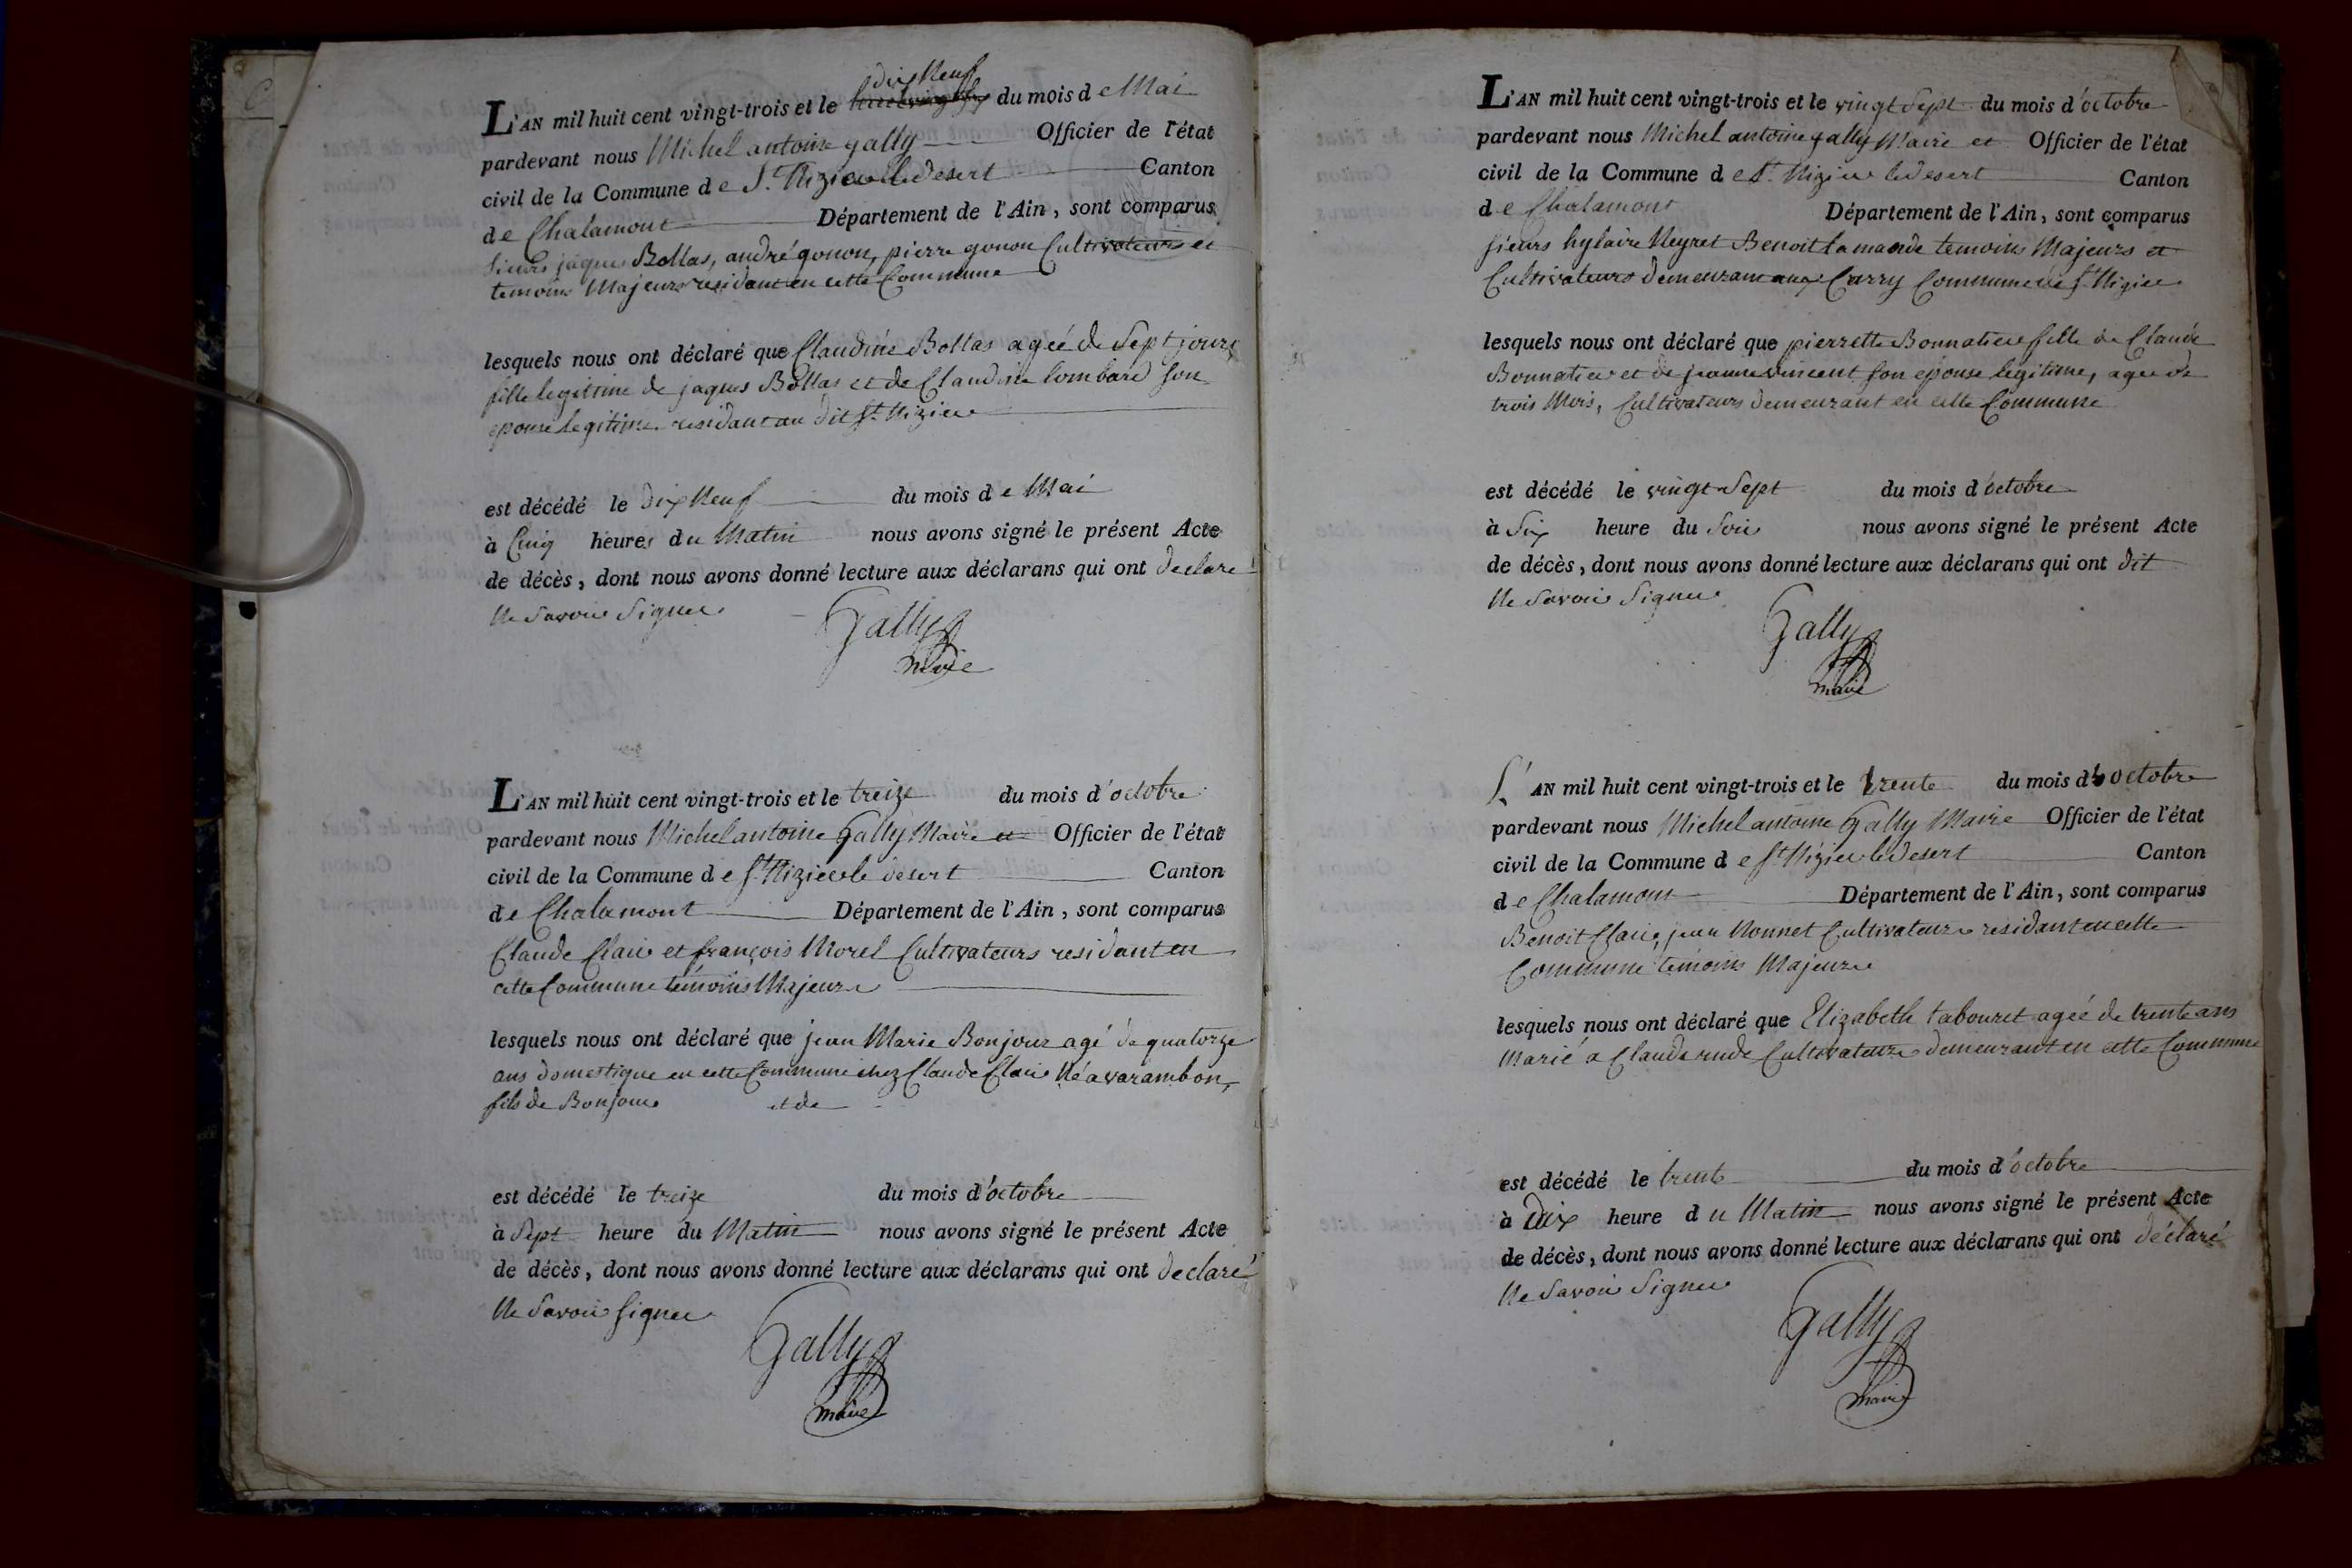 dix Neuf
L'AN mil huit cent vingt-trois et le du mois de Mai
pardevant nous Michel antoine gally Officier de l'état
civil de la Commune de St. Nizier le desert Canton
de Chalamont Département de l'Ain, sont comparus
sieurs jaques Bollas, andré gonon, pierre gonon Cultivateurs et
temoins Majeurs residant en cette Commune
lesquels nous ont déclaré que Claudine Bollas agée de Sept jours
fille legitime de jaques Bollas et de Claudine lombard son
epouse legitime residant au dit St. Nizier
est décédé le dix Neuf du mois de Mai
à Cinq heures du Matin nous avons signé le présent Acte
de décès, dont nous avons donné lecture aux déclarans qui ont declaré
Ne Savoir Signer
Gally
maire
L'AN mil huit cent vingt-trois et le treize du mois d'octobre
pardevant nous Michel antoine Gally Maire et Officier de l'état
civil de la Commune de St. Nizier le desert Canton
de Chalamont Département de l'Ain, sont comparus
Claude Clair et françois Morel Cultivateurs residant en
cette Commune témoins Majeurs
lesquels nous ont déclaré que jean Marie Bonjour agé de quatorze
ans domestique en cette Commune chez Claude Clair Né a varambon,
fils de Bonjour et de
est décédé le treize du mois d'octobre
à Sept heure du Matin nous avons signé le présent Acte
de décès, dont nous avons donné lecture aux déclarans qui ont declaré
Ne Savoir signer
Gally
maire
L'AN mil huit cent vingt-trois et le vingt Sept du mois d'octobre
pardevant nous Michel antoine gally Maire et Officier de l'état
civil de la Commune de St. Nizier le desert Canton
de Chalamont Département de l'Ain, sont comparus
sieurs hylaire Neyret Benoit lamande temoins Majeurs et
Cultivateurs demeurant aux Carry Commune de St Nizier
lesquels nous ont déclaré que pierrette Bonnatier fille de Claude
Bonnatier et de jeanne vincent son epouse legitime, agée de
trois Mois, Cultivateurs demeurant en cette Commune
est décédé le vingt Sept du mois d'octobre
à Six heure du Soir nous avons signé le présent Acte
de décès, dont nous avons donné lecture aux déclarans qui ont dit
Ne Savoir Signer
Gally
maire
L'AN mil huit cent vingt-trois et le trente du mois d'octobre
pardevant nous Michel antoine Gally Maire Officier de l'état
civil de la Commune de St Nizier le desert Canton
de Chalamont Département de l'Ain, sont comparus
Benoit Clair, jean Monnet Cultivateurs residant en cette
Commune temoins Majeurs
lesquels nous ont déclaré que Elizabeth tabouret agée de trente ans
Marié a Claude rude Cultivateurs demeurant en cette Commune
est décédé le trente du mois d'octobre
à Dix heure du Matin nous avons signé le présent Acte
de décès, dont nous avons donné lecture aux déclarans qui ont déclaré
Ne Savoir Signer
Gally
maire